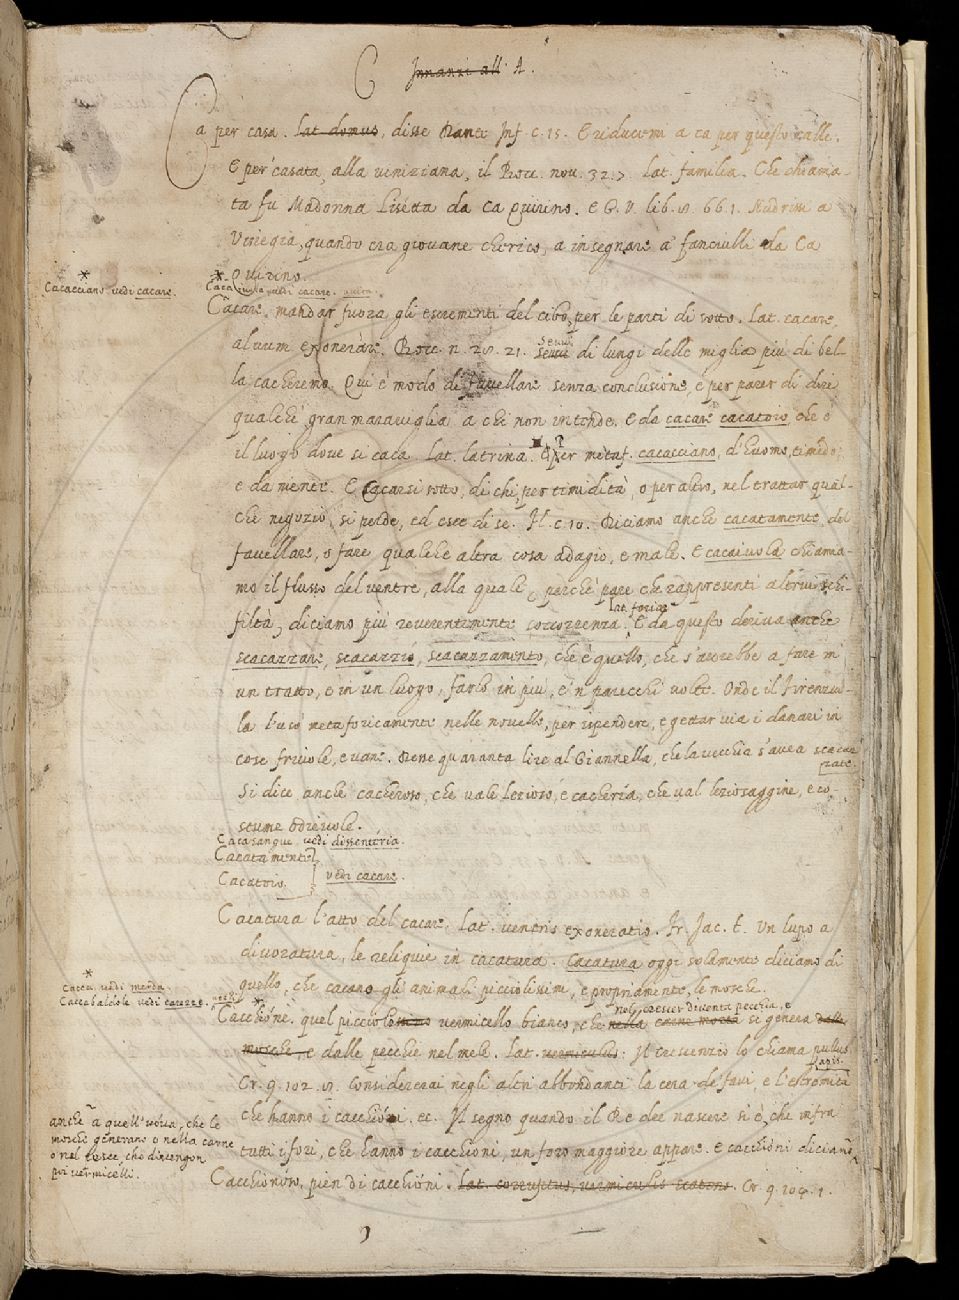 C Innanzi all A.
Ca per casa. Lat. domus, disse Dante Inf. c. 15. E riducemi a ca per questo calle.
E per casata, alla viniziana, il Bocc. nov. 32. 7. Lat. familia. Che chiama-
ta fu Madonna Lisetta da ca Quirino. E G. V. lib. 8. 66. 1. Nudrissi a
Vinegia, quando era giovane cherico, a insegnare a' fanciulli da Ca
Quirino.
* Cacacciano vedi cacare.
* Cacaiuola vedi cacare.
Cacare. mandar fuora gli escrementi del cibo, per le parti di sotto. Lat. cacare,
alvum exonerare. Bocc. n. 28. 21. senni
sennu di lungi delle miglia più di bel-
la cacheremo. Qui è modo di favellare senza conclusione, e per parer di dire
qualche gran maraviglia a chi non intende. E da cacare cacatoio, che è
il luogo dove si caca. Lat. latrina. E per metaf. cacacciano, d'huomo timido,
e da niente. E Cacarsi sotto, di chi, per timidità, o per altro, nel trattar qual-
che negozio, si perde, ed esce di se. Diciamo anche cacatamente, del
favellare, o fare qualche altra cosa adagio, e male. E cacaiuola chiama-
mo il flusso del ventre, alla quale, perche pare che rappresenti altrui schi-
filtà, diciamo più reverentemente soccorrenza. Lat. foria. E da questo deriva anche
scacazzare, scacazzio, scacazzamento, che è quello, che s'avrebbe a fare in
un tratto, e in un luogo, farlo in più, e 'n parecchi volte. Onde il Firenzuo-
la l'usò metaforicamente nelle novelle, per ispendere, e gettar via i danari in
cose frivole, e vane. Dette quaranta lire al Giannella, che la vecchia s'avea scacaz
zate.
Si dice anche cacheroso, che vale lezioso, e cacheria, che val leziosaggine, e co-
stume odievole.
Cacasangue. vedi dissenteria.
Cacatamente
Cacatoio. vedi cacare.
Cacatura l'atto del cacare. Lat. ventris exoneratio. Fr. Jac. t. Un lupo a
divoratura, le reliquie in cacatura. Cacatura oggi solamente diciamo di
quello, che cacano gli animali picciolissimi, e propriamente, le mosche.
* Cacca. vedi merda.
Caccabaldole vedi carezze.
* Cacchione. quel picciolissimo vermicello bianco, che nella carne morta si genera dalle
non esser diventa pecchia, e
mosche, e dalle pecchie nel mele. Lat. vermiculus: Il Crescenzio lo chiama pullus
apis.
Cr. 9. 102. 8. Considererai negli altri abbondanti la cera de' favi, e l'estremità
che hanno i cacchioni. ec. Il segno quando il Re dee nascere si è, che infra
tutti i fori, che hanno i cacchioni, un foro maggiore appare. E cacchioni diciamo
anche a quell'uova, che le
mosche generano o nella carne
o nel pesce, che divengon
poi vermicelli.
Cacchionoso, pien di cacchioni. Lat. corruptus, vermiculis scatens. Cr. 9. 104. 1.